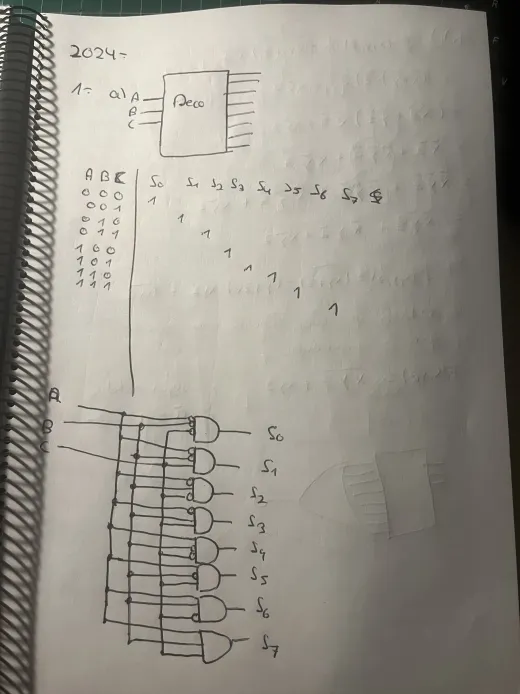 2024-
1- a) A
B
C
Deco
A B C S0 S1 S2 S3 S4 S5 S6 S7
0 0 0 1
0 0 1 1
0 1 0 1
0 1 1 1
1 0 0 1
1 0 1 1
1 1 0 1
1 1 1 1
A
B
C
S0
S1
S2
S3
S4
S5
S6
S7